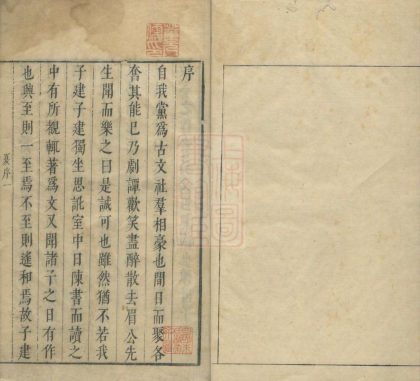 序
自我黨爲古文社羣相豪也閒日而聚各
奮其能已乃劇譚歡笑盡醉散去眉公先
生聞而樂之曰是誠可也雖然猶不若我
子建子建獨坐思託室中日陳書而讀之
中有所觀輒著爲文又聞諸子之日有作
也興至則一至焉不至則遙和焉故子建
夏序一